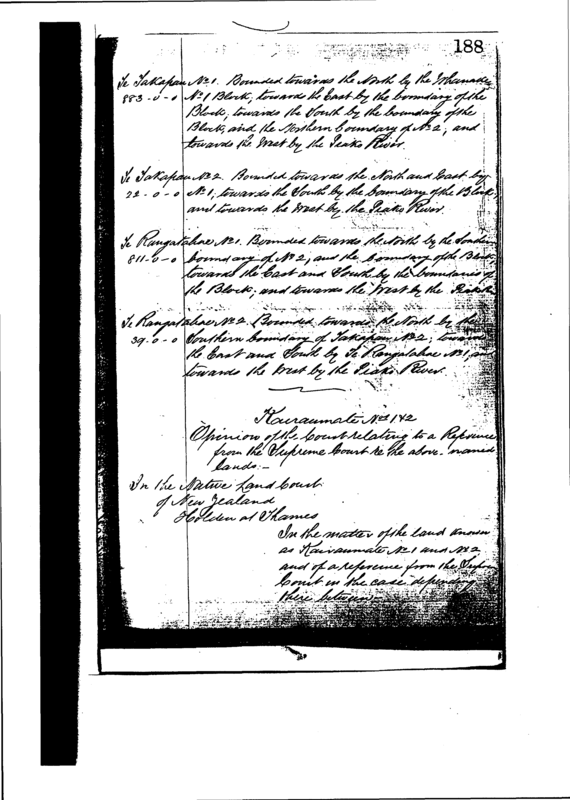 188
Te Takapau No 1. Bounded towards the North by the
883-0-0 No 1 Block, towards the East by the boundary of the
Block, towards the South by the boundary of the
Block, and the Northern boundary of No 2, and
towards the West by the Piako River.
Te Takapau No 2. Bounded towards the North and East by
22-0-0 No 1, towards the South by the boundary of the Block,
and towards the West by the Piako River.
Te Rangatahae No 1. Bounded towards the North by the
811-0-0 boundary of No 2, and the boundary of the Block,
towards the East and South by the boundaries of
the Block, and towards the West by the Piako
Te Rangatahae No 2. Bounded towards the North by the
39-0-0 Southern boundary of Takapau No 2; towards
the East and South by Te Rangatahae No 1, and
towards the West by the Piako River.
Kairaumate Nos 1 & 2
Opinion of the Court relating to a Reference
from the Supreme Court re the above-named
lands:-
In the Native Land Court
of New Zealand
Holden at Thames
In the matter of the land known
as Kairaumate No 1 and No 2
and of a reference from the
Court in the case depending
there between